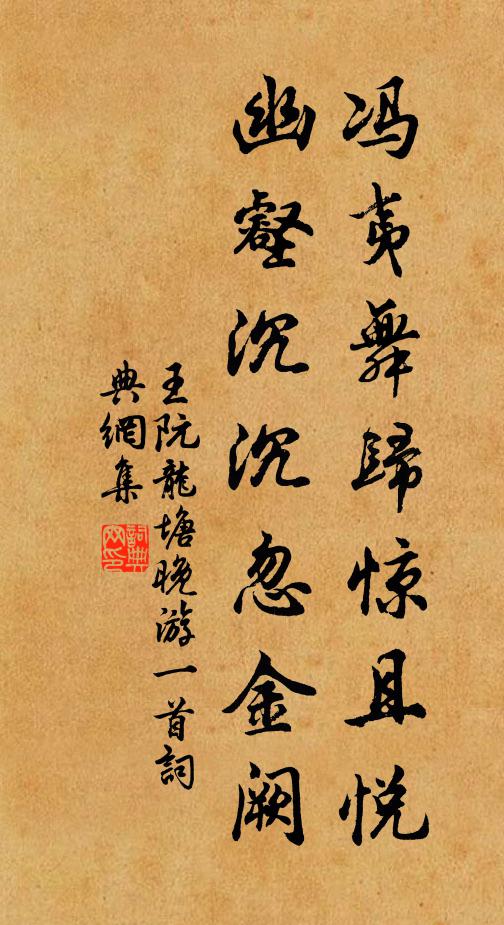 冯夷舞歸惊且悦
幽壑沉沉忽金阙
王阮龍塘晚游一首詞
典網集
詞典
网印